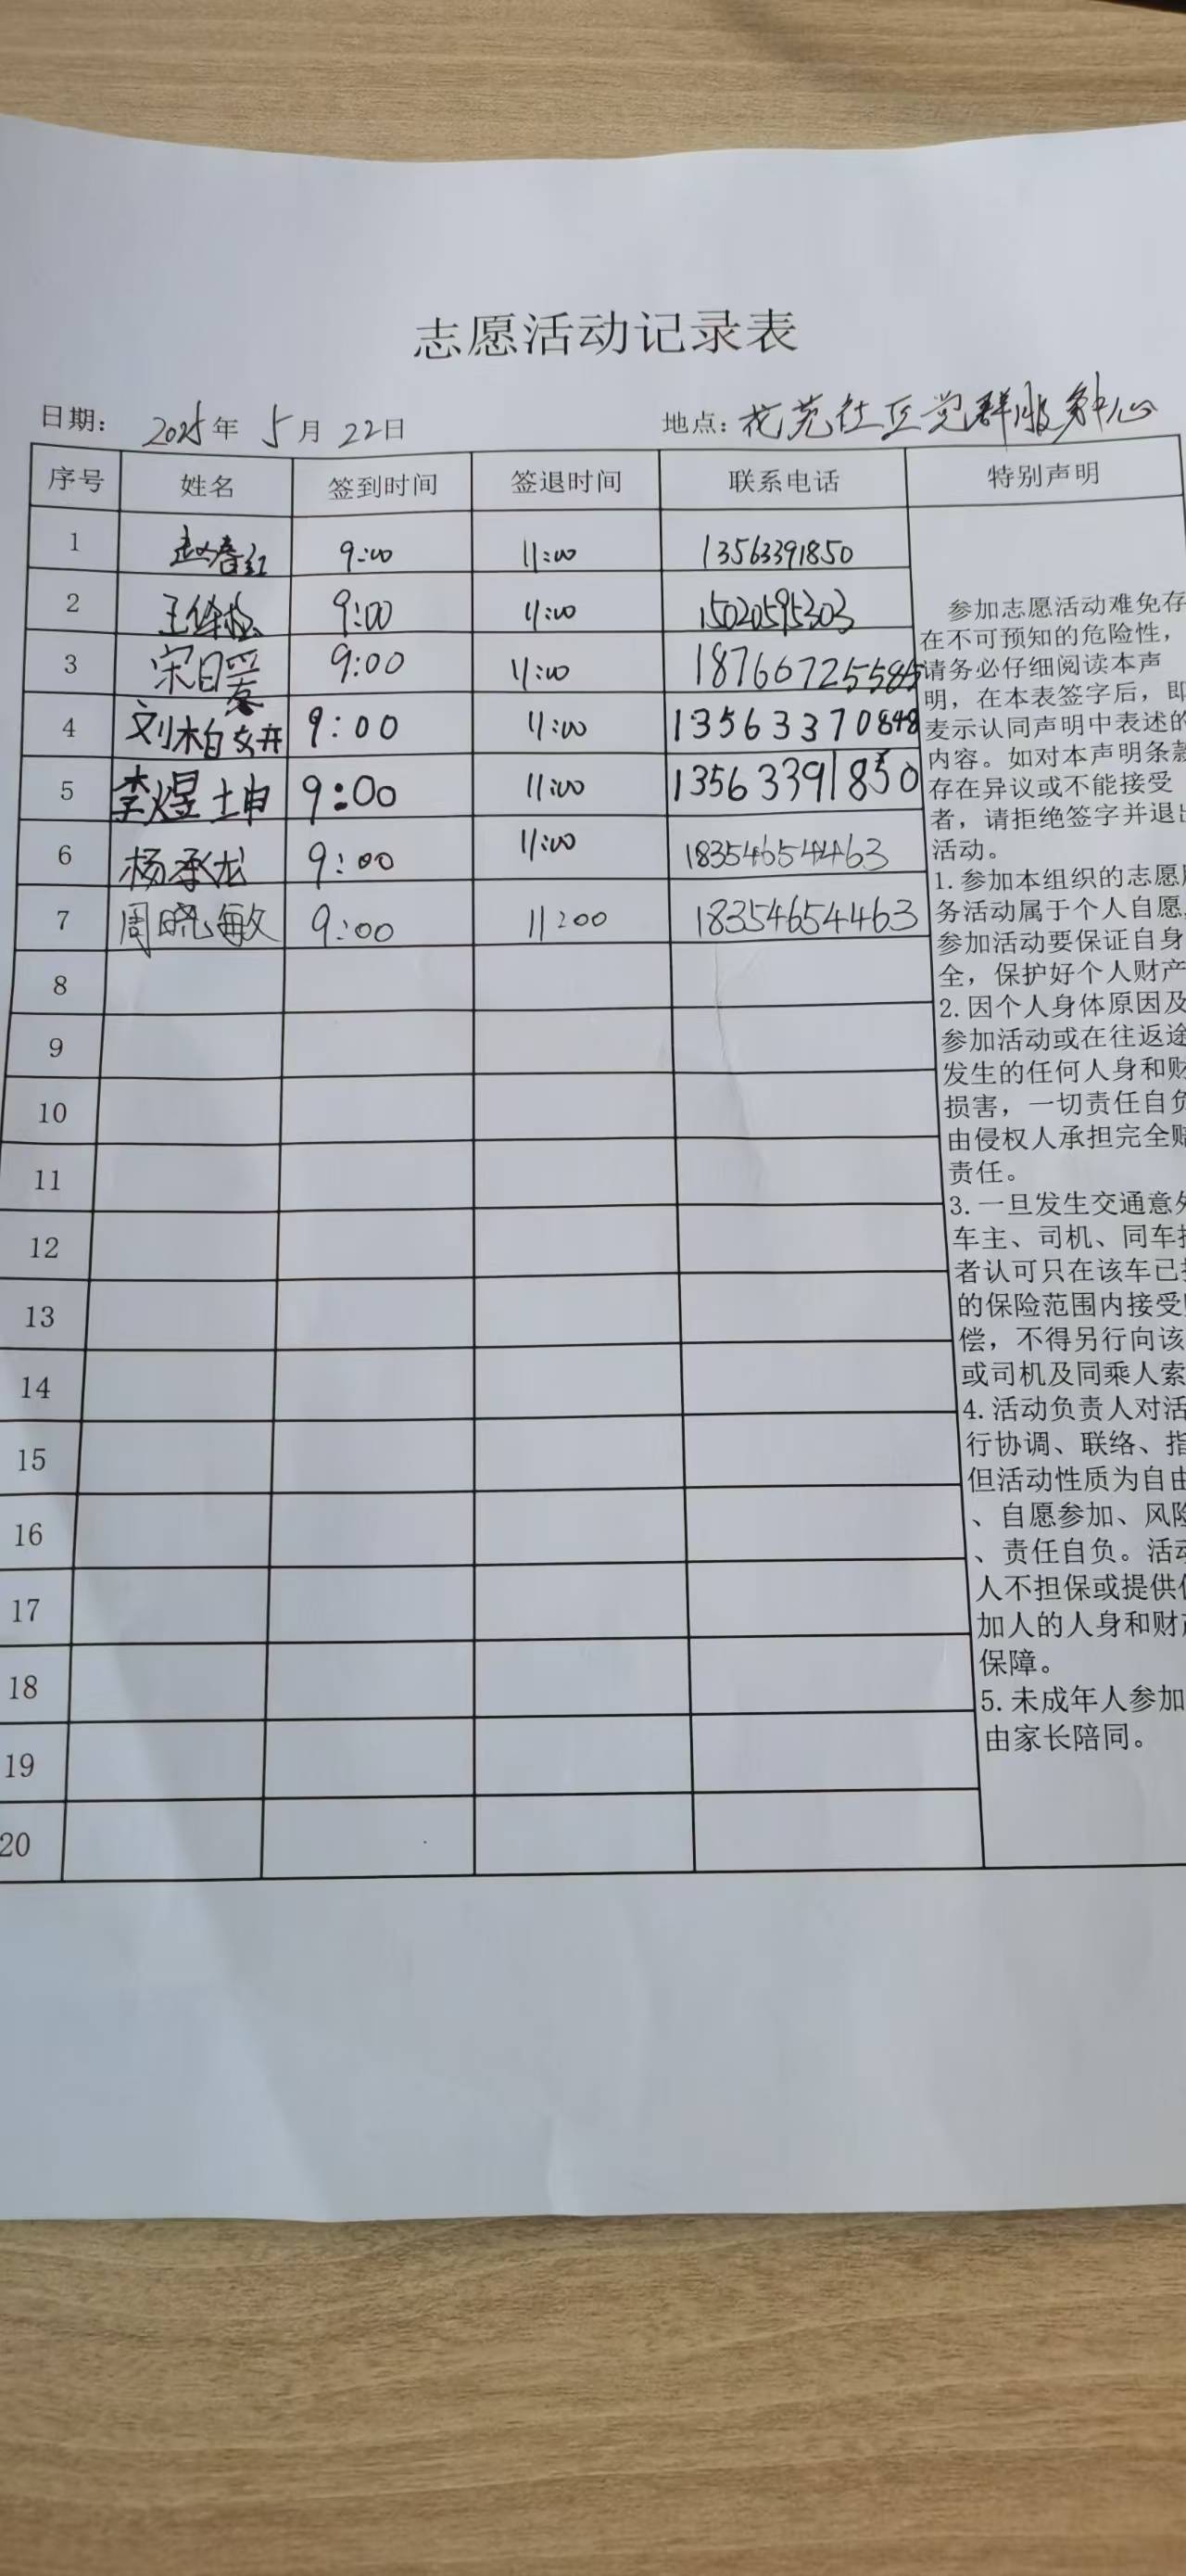 志愿活动记录表
日期： 2025年 5月 22日 地点：花苑社区党群服务中心
序号 姓名 签到时间 签退时间 联系电话 特别声明
1 赵春红 9:00 11:00 13563391850
2 王 9:00 11:00 15020595303
3 宋日 9:00 11:00
4 刘柏妍 9:00 11:00 13563370848
5 李煜坤 9:00 11:00 13563391850
6 杨承龙 9:00 11:00 18354654463
7 周晓敏 9:00 11:00 18354654463
8
9
10
11
12
13
14
15
16
17
18
19
20
参加志愿活动难免存
在不可预知的危险性，
请务必仔细阅读本声
明，在本表签字后，即
麦示认同声明中表述的
内容。如对本声明条款
存在异议或不能接受
者，请拒绝签字并退出
活动。
1.参加本组织的志愿服
务活动属于个人自愿，
参加活动要保证自身
全，保护好个人财产
2.因个人身体原因及
参加活动或在往返途
发生的任何人身和财
损害，一切责任自负
由侵权人承担完全赔
责任。
3.一旦发生交通意外
车主、司机、同车搭
者认可只在该车已投
的保险范围内接受赔
偿，不得另行向该
或司机及同乘人索
4.活动负责人对活
行协调、联络、指
但活动性质为自由
、自愿参加、风险
、责任自负。活动
人不担保或提供任
加人的人身和财产
保障。
5.未成年人参加
由家长陪同。